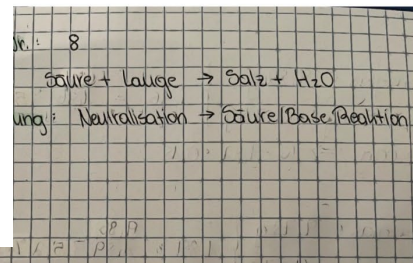 Nr.: 8
Säure + Lauge → Salz + H₂O
ung: Neutralisation → Säure/Base/Reaktion